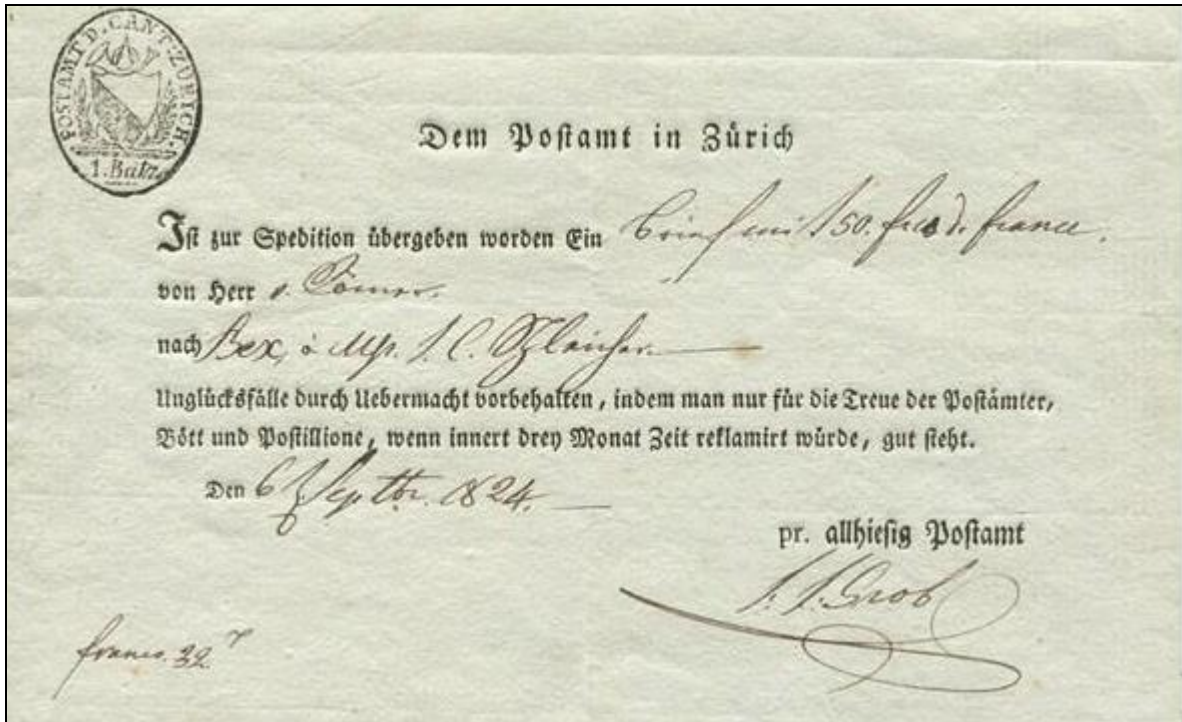 POSTAMT D. CANT: ZÜRICH.
1. Batz.
Dem Postamt in Zürich
Ist zur Spedition übergeben worden Ein Brief mit 50. frcs d. france.
von Herr v.
nach Bex, à
Unglücksfälle durch Uebermacht vorbehalten, indem man nur für die Treue der Postämter,
Bött und Postillione, wenn innert drey Monat Zeit reklamirt würde, gut steht.
Den 6 Septbr. 1824.
pr. allhiesig Postamt
Grob
franco. 32